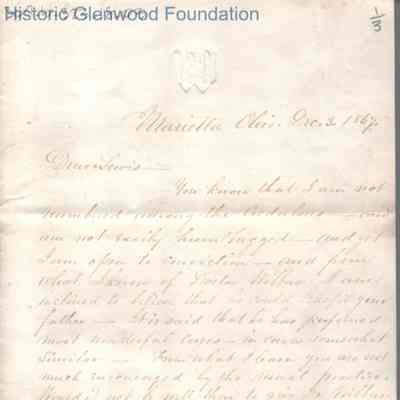 Historic Glenwood Foundation
1/3
Marietta Ohio. Dec. 2. 1867.
Dear Lewis —
You know that I am not
numbered among the credulous — and
am not easily humbugged — and yet
I am open to conviction — and from
what I know of Doctor I am
inclined to believe that he could help your
father — It is said that he has performed
most wonderful cures — in cases somewhat
similar — From what I learn you are not
much encouraged by the usual practice